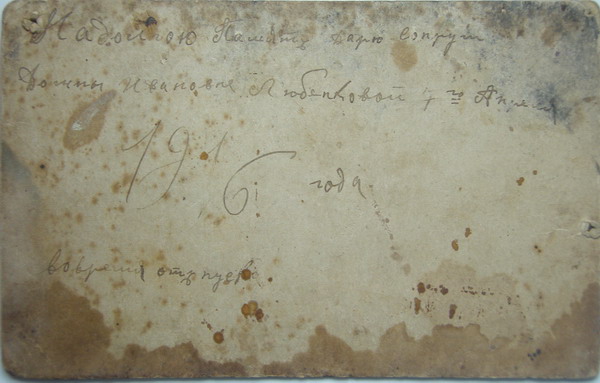 На долгою Память дарю Супруги
Ивановне Любенковой 7 го Апреля
1916 года
вовремя отпуска